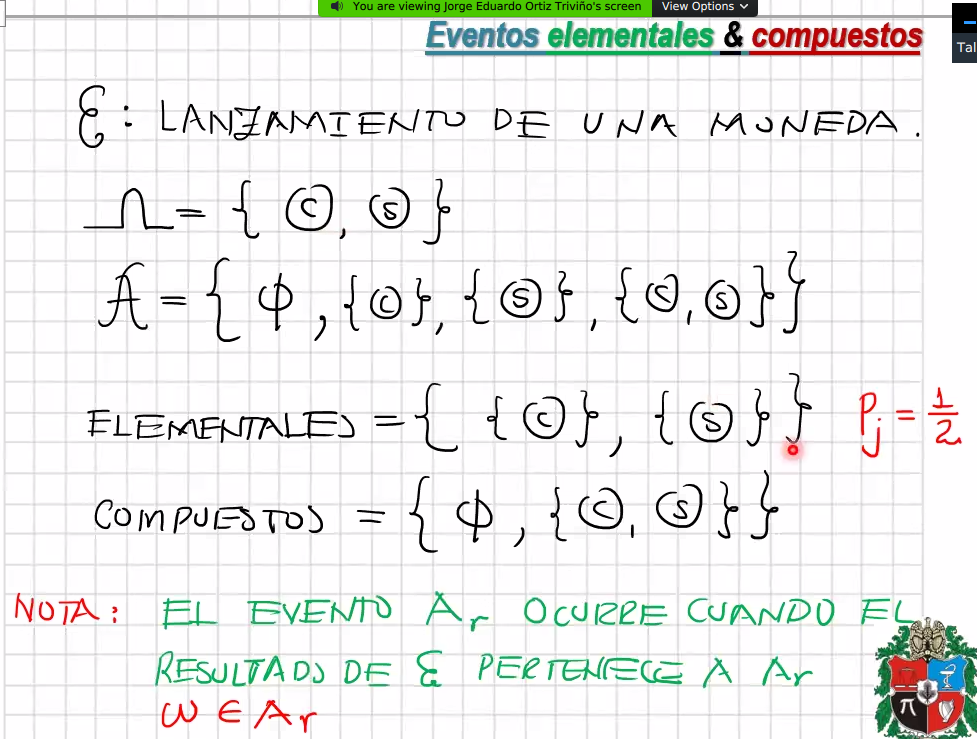 You are viewing Jorge Eduardo Ortiz Triviño's screen View Options
Eventos elementales & compuestos
Tal
ℰ : LANZAMIENTO DE UNA MONEDA.
Ω = { Ⓒ, Ⓢ }
𝒜 = { ϕ, {Ⓒ}, {Ⓢ}, {Ⓒ, Ⓢ} }
ELEMENTALES = { {Ⓒ}, {Ⓢ} } Pj = 1/2
COMPUESTOS = { ϕ, {Ⓒ, Ⓢ} }
NOTA: EL EVENTO Ar OCURRE CUANDO EL
RESULTADO DE ℰ PERTENECE A Ar
ω ∈ Ar